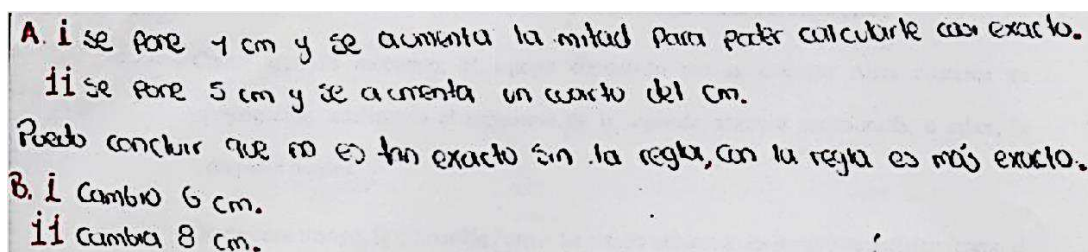 A. i se pone 1 cm y se aumenta la mitad para poder calcularle casi exacto.
ii se pone 5 cm y se aumenta un cuarto del cm.
Puedo concluir que no es tan exacto sin la regla, con la regla es más exacto.
B. i Cambio 6 cm.
ii Cambia 8 cm.